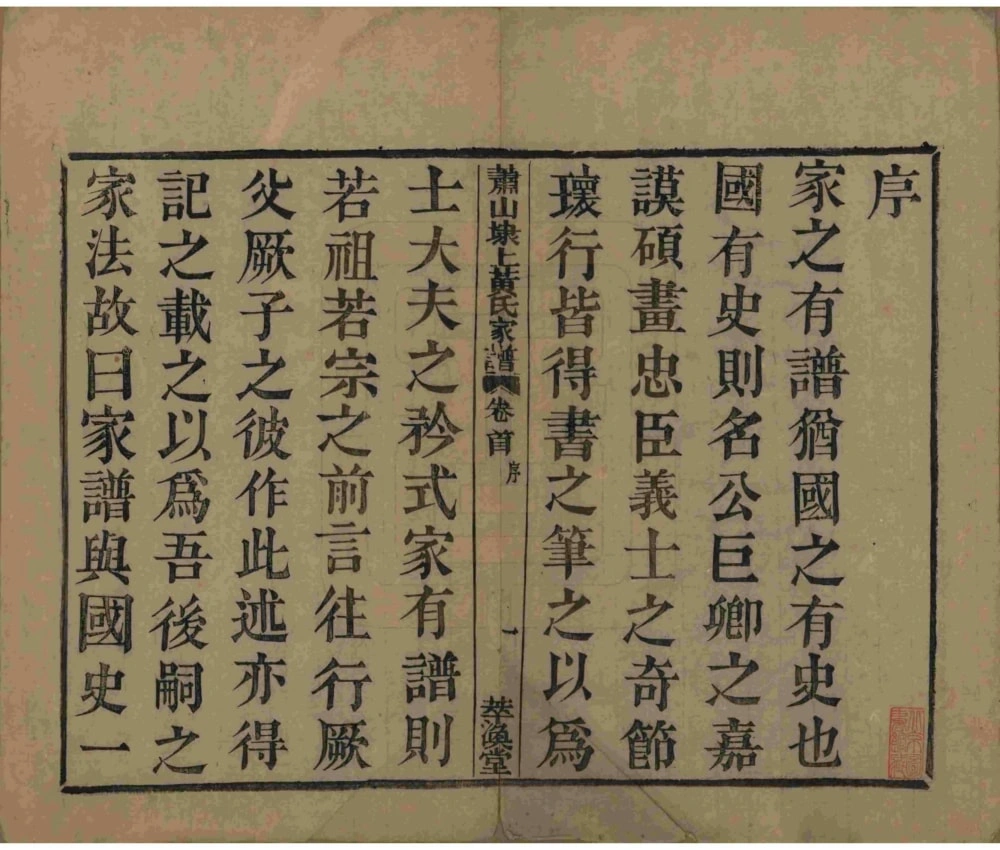 序
家之有譜猶國之有史也
國有史則名公巨卿之嘉
謨碩畫忠臣義士之奇節
瓌行皆得書之筆之以爲
蕭山埭上黄氏家譜 卷首 序 一 萃渙堂
士大夫之矜式家有譜則
若祖若宗之前言往行厥
父厥子之彼作此述亦得
記之載之以爲吾後嗣之
家法故曰家譜與國史一